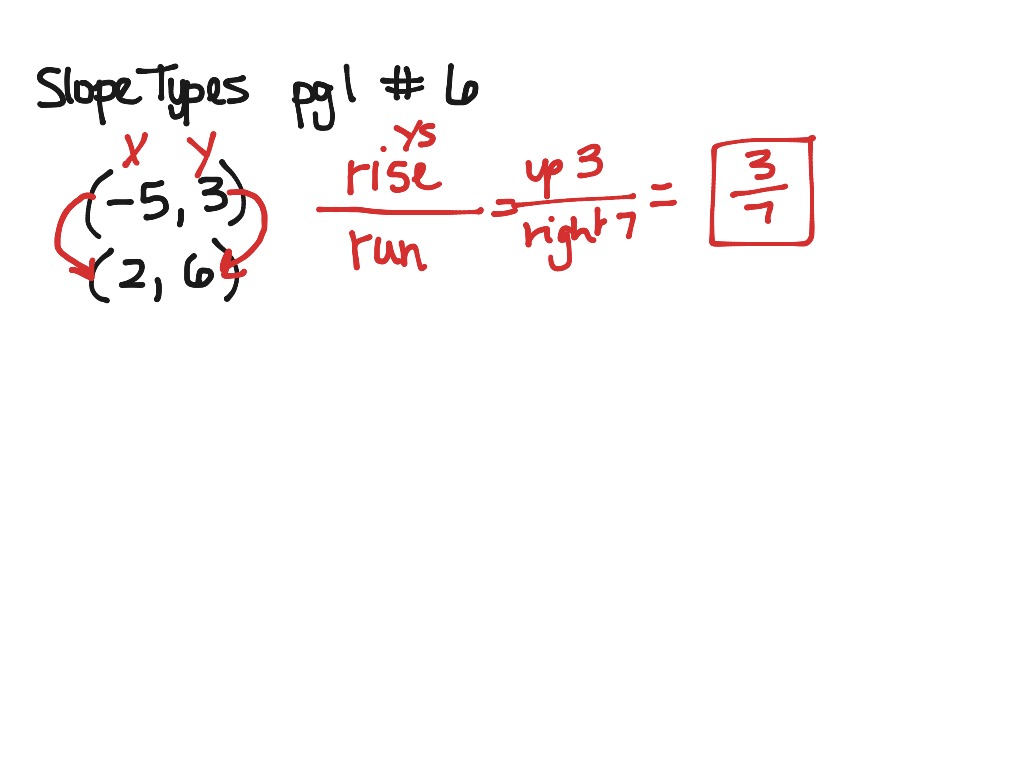 Slope Types pg 1 # 6
x y
ys
(-5, 3) rise/run = up 3/right 7 = 3/7
(2, 6)